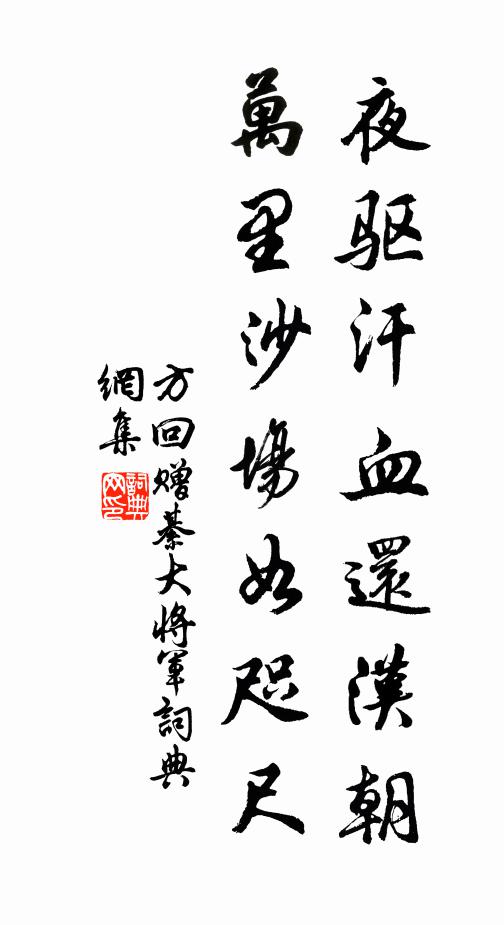 夜驱汗血還漢朝
萬里沙場如咫尺
方回赠綦大将軍詞典
網集
詞典
网印